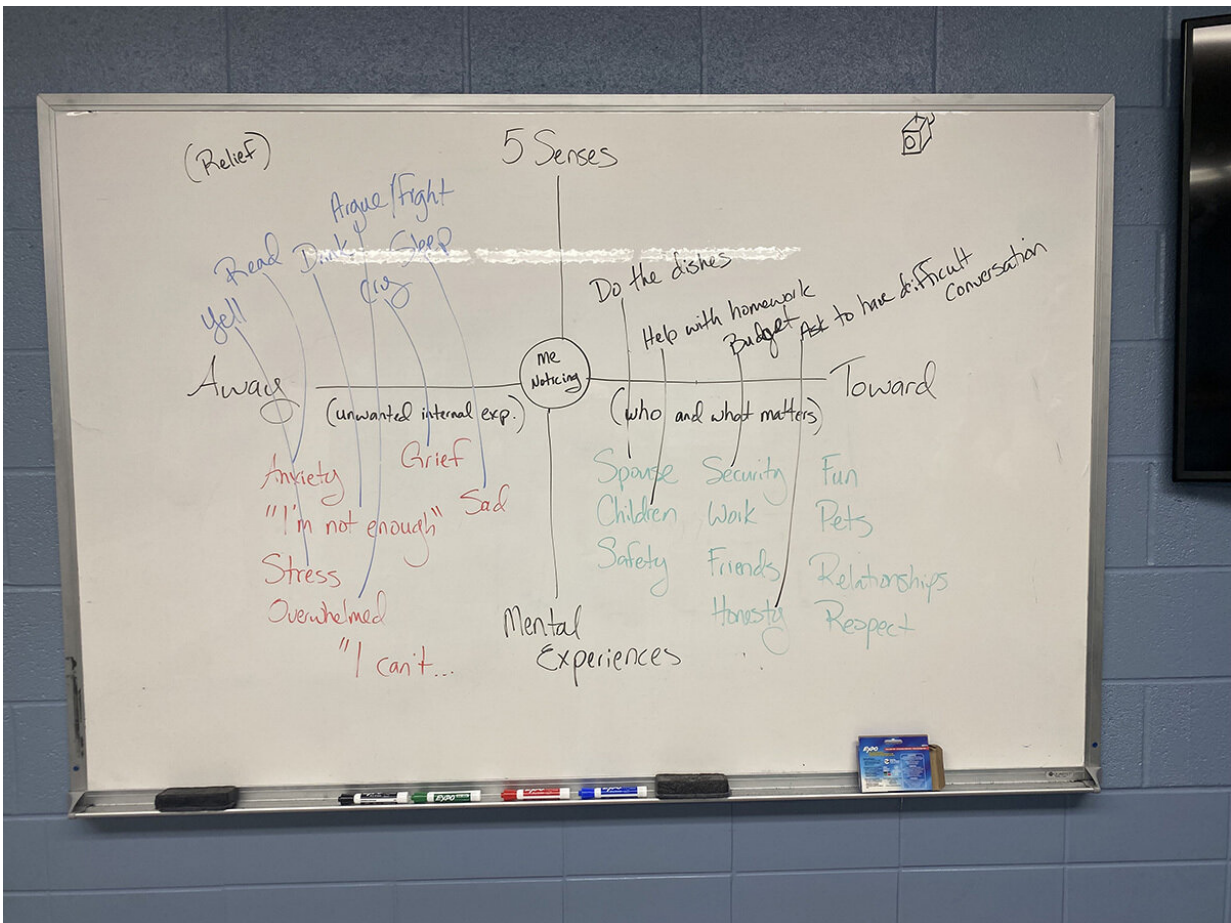 (Relief)
5 Senses
Argue/Fight
Read
Drink
Sleep
Cry
Yell
Do the dishes
Help with homework
Budget
Ask to have difficult
Conversation
Away
Me
Noticing
Toward
(unwanted internal exp.)
(who and what matters)
Anxiety
Grief
"I'm not enough"
Sad
Stress
Overwhelmed
"I can't...
Spouse Security Fun
Children Work Pets
Safety Friends Relationships
Honesty Respect
Mental
Experiences
EXPO
EXPO